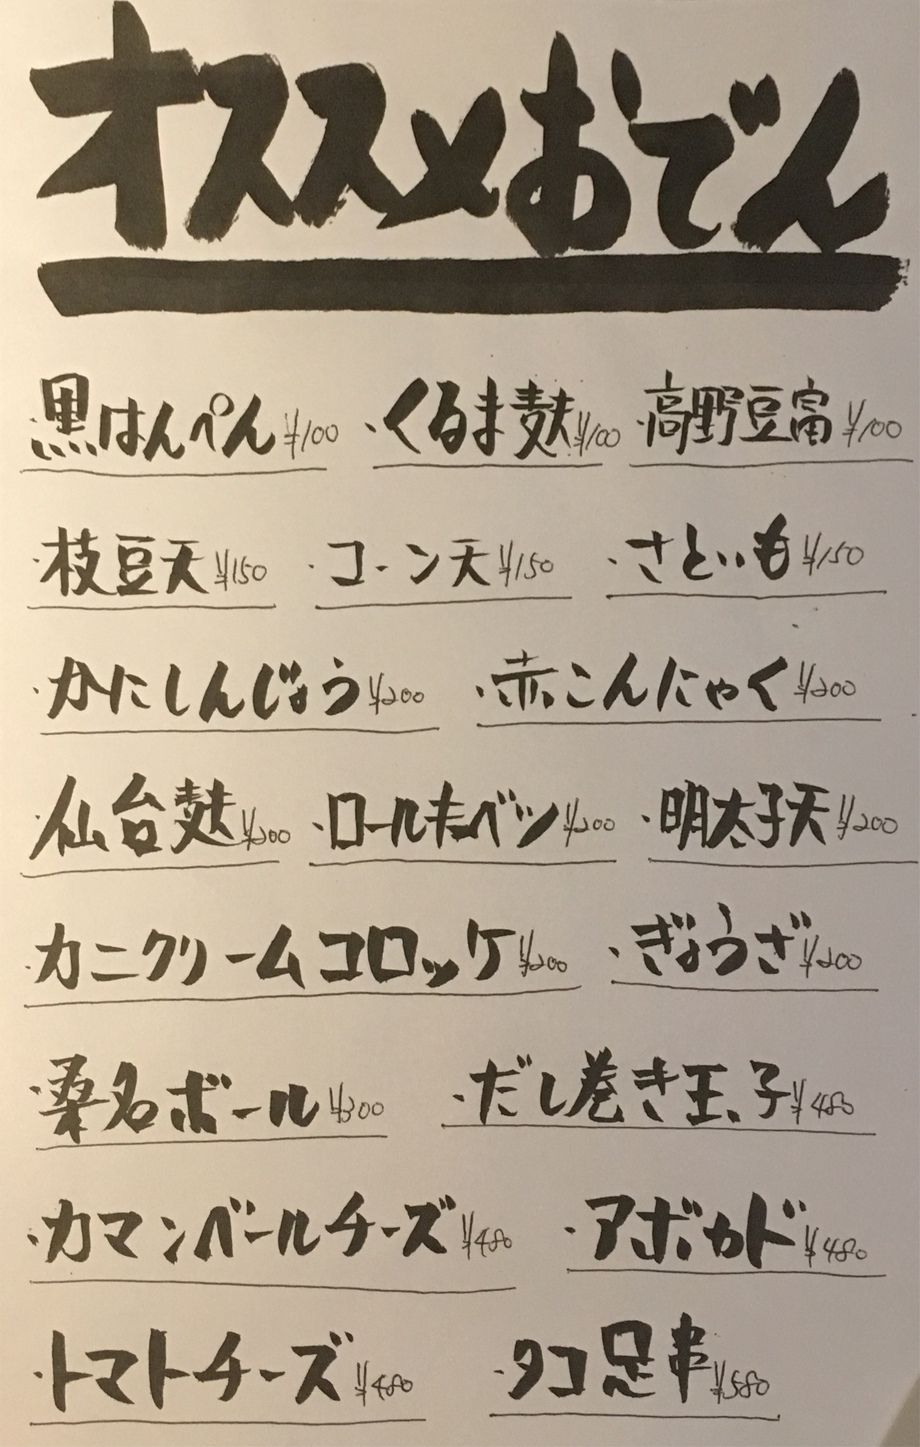 オススメおでん
・黒はんぺん ¥100 ・くるま麩 ¥100 ・高野豆富 ¥100
・枝豆天 ¥150 ・コーン天 ¥150 ・さといも ¥150
・かにしんじょう ¥200 ・赤こんにゃく ¥200
・仙台麩 ¥200 ・ロールキャベツ ¥200 ・明太子天 ¥200
・カニクリームコロッケ ¥200 ・ぎょうざ ¥200
・桑名ボール ¥300 ・だし巻き玉子 ¥480
・カマンベールチーズ ¥480 ・アボカド ¥480
・トマトチーズ ¥480 ・タコ足串 ¥580